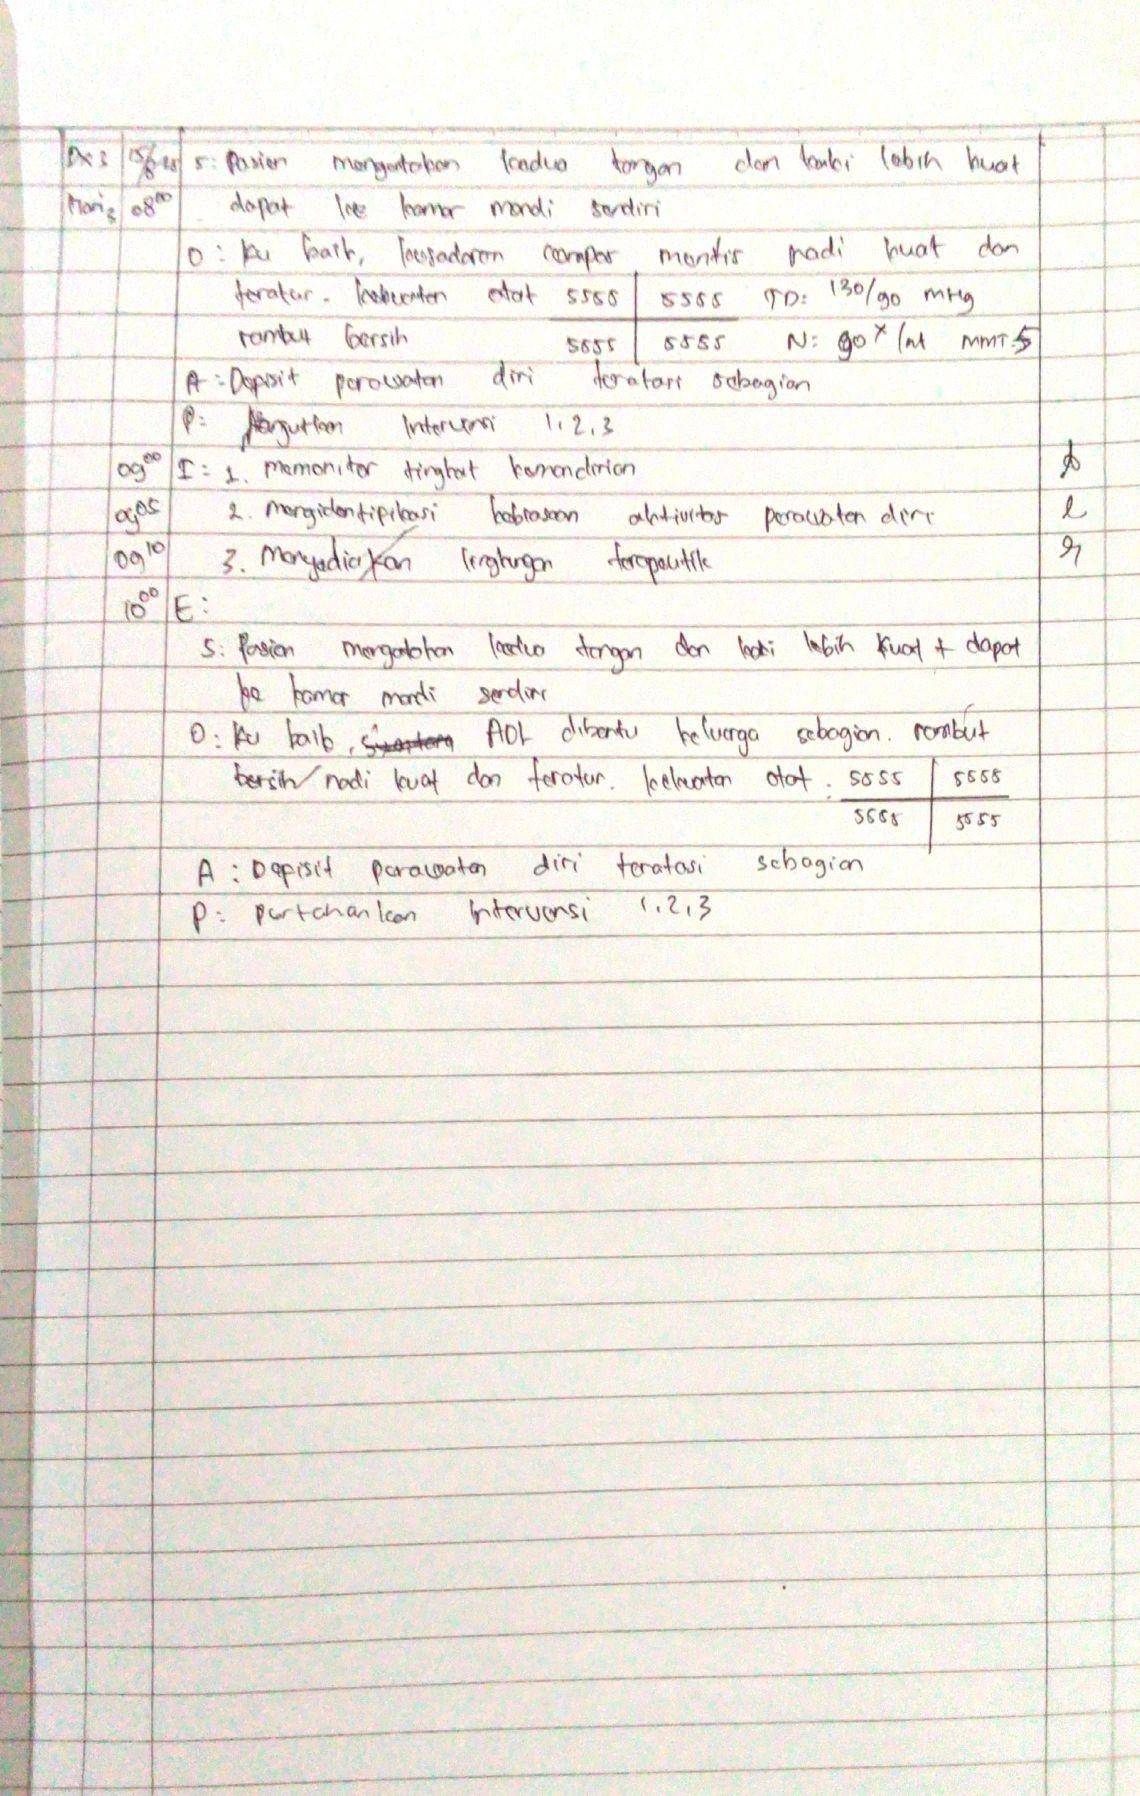 Dx 3 S: Pasien mengatakan kedua tangan dan kaki lebih kuat
Hari 3 08⁰⁰ dapat ke kamar mandi sendiri
O: Ku baik, kesadaran compos mentis nadi kuat dan
teratur. kekuatan otot 5555 | 5555 TD: 130/90 mmHg
rambut bersih 5555 | 5555 N: 90 x/m MMT: 5
A: Depisit perawatan diri teratasi sebagian
P: lanjutkan Intervensi 1, 2, 3
09⁰⁰ I: 1. memonitor tingkat kemandirian
09⁰⁵ 2. mengidentipikasi kebiasaan aktivitas perawatan diri
09¹⁰ 3. Menyediakan lingkungan terapeutik
10⁰⁰ E:
S: Pasien mengatakan kedua tangan dan kaki lebih kuat + dapat
ke kamar mandi sendiri
O: Ku baik, ADL dibantu keluarga sebagian. rambut
bersih nadi kuat dan teratur. kekuatan otot: 5555 | 5555
5555 | 5555
A: Depisit perawatan diri teratasi sebagian
P: pertahankan Intervensi 1, 2, 3